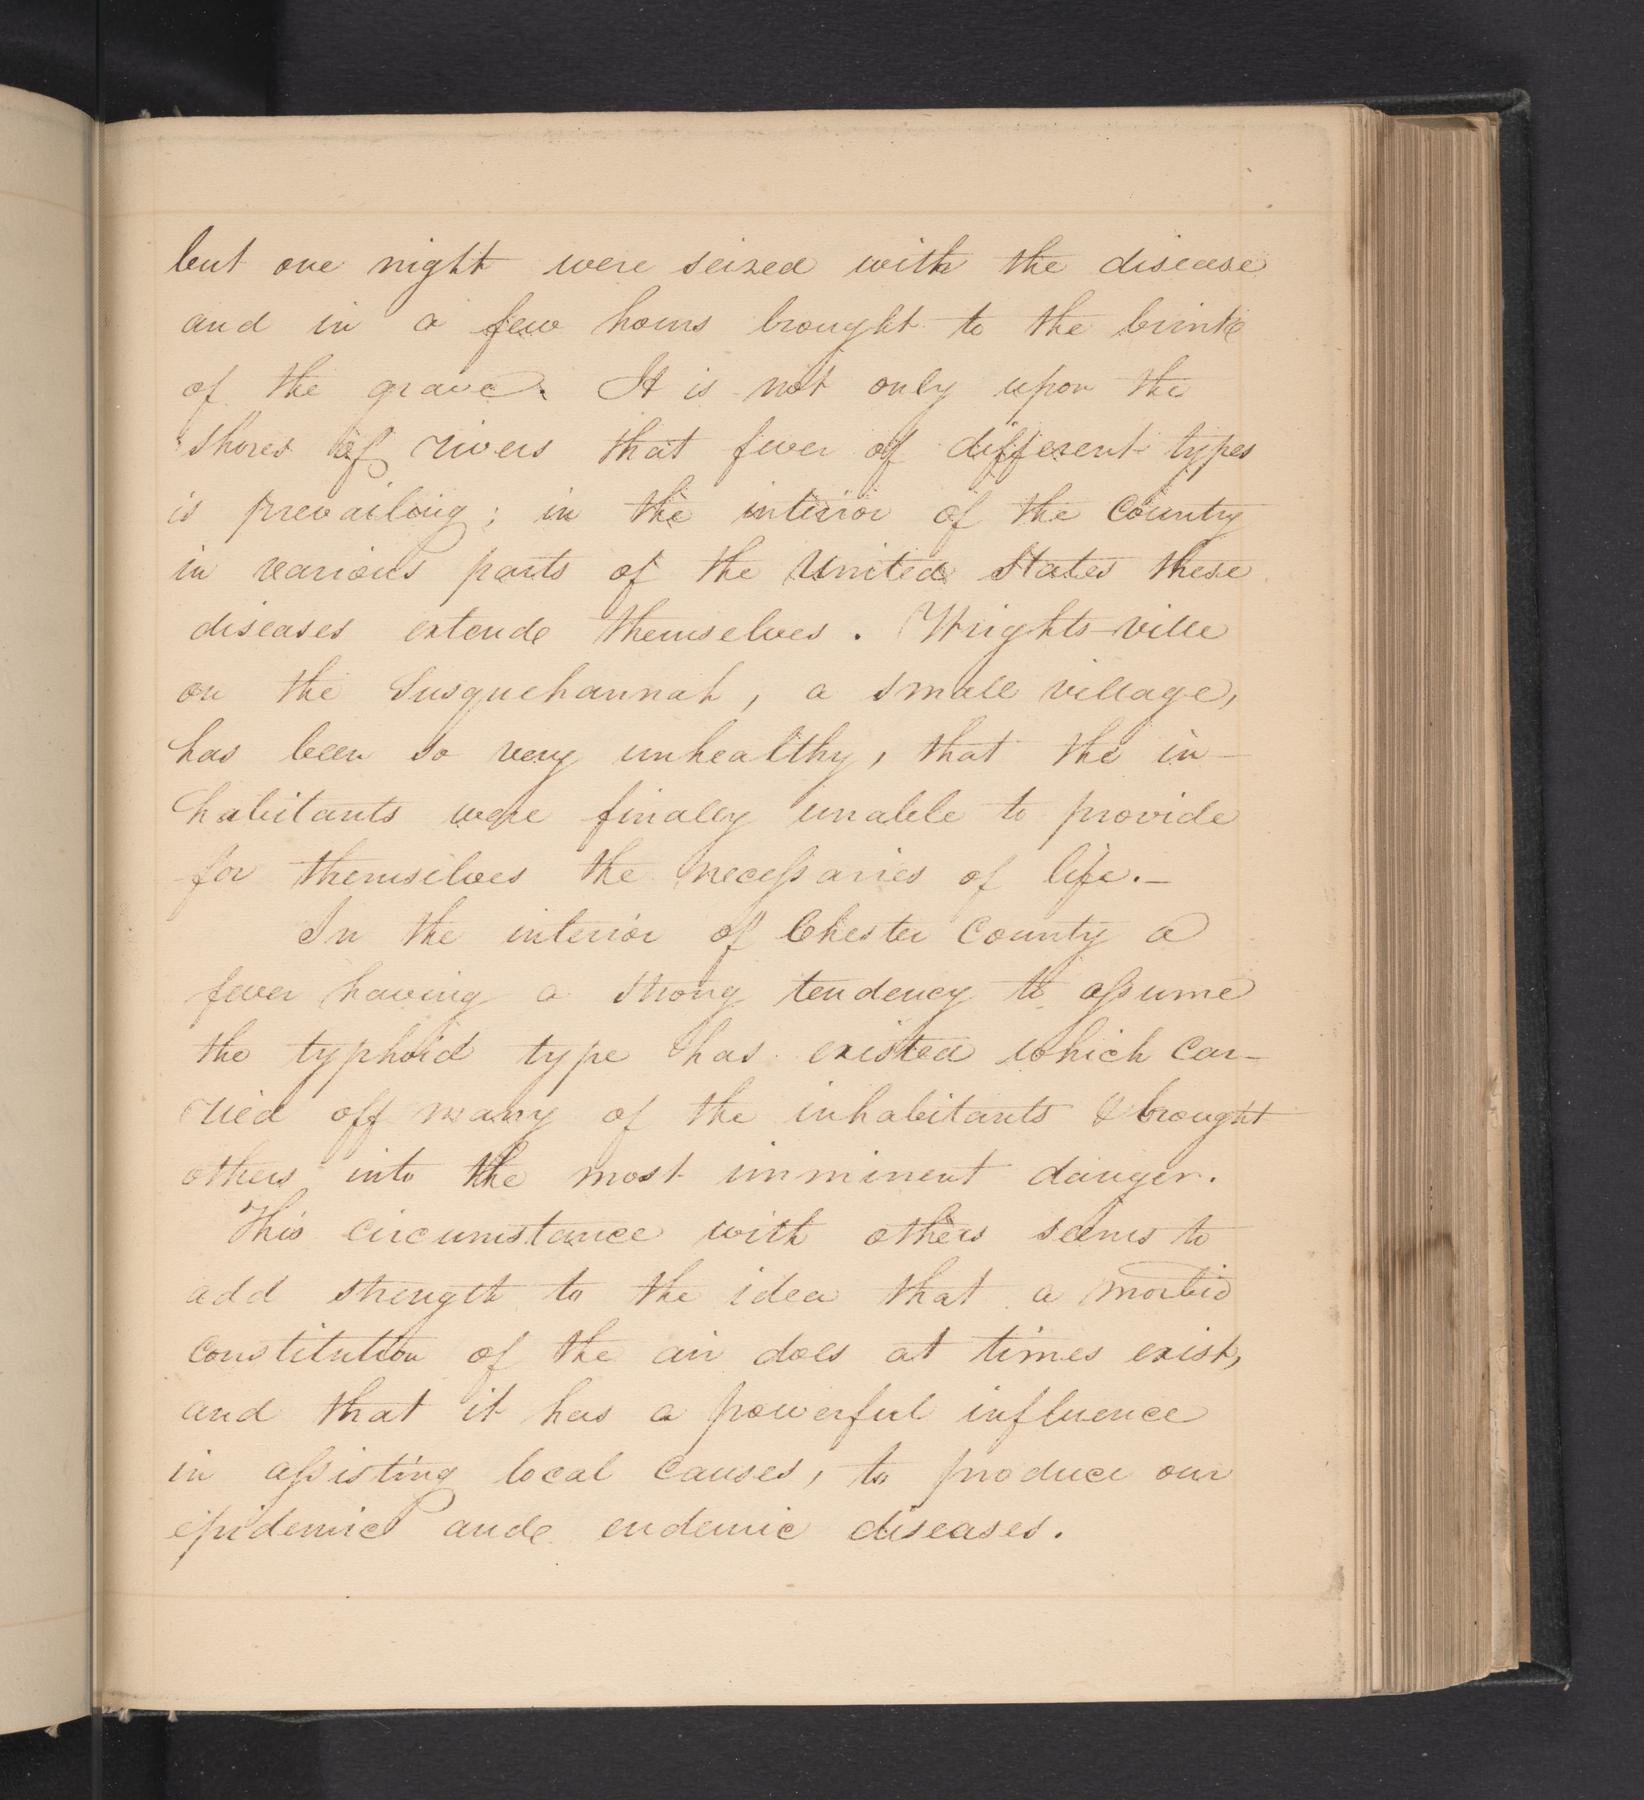 but one night were seized with the disease
and in a few hours brought to the brink
of the grave. It is not only upon the
shores of rivers that fever of different types
is prevailing; in the interior of the County
in various parts of the United States these
diseases extend themselves. Wrights-ville
on the Susquehannah, a small village,
has been so very unhealthy, that the in-
habitants were finally unable to provide
for themselves the necessaries of life.—
In the interior of Chester County a
fever having a strong tendency to assume
the typhoid type has existed which car-
ried off many of the inhabitants & brought
others into the most imminent danger.
This circumstance with others seems to
add strength to the idea that a morbid
constitution of the air does at times exist,
and that it has a powerful influence
in assisting local causes, to produce our
epidemic and endemic diseases.